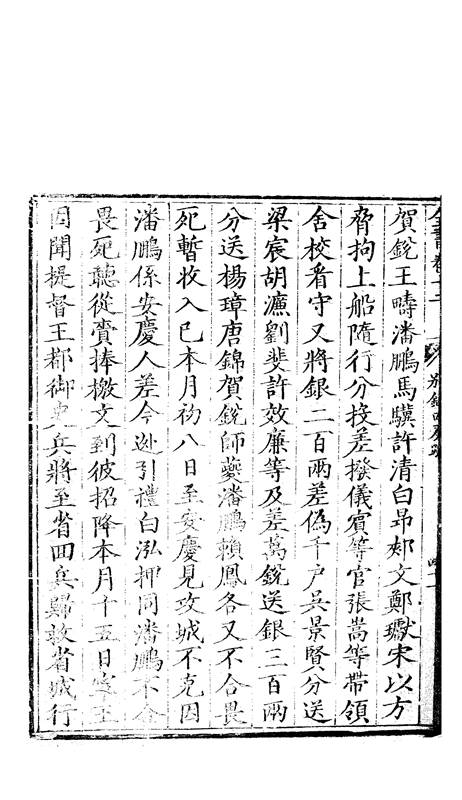 全書卷十二 別錄四 奏疏
賀銳王疇潘鵬馬驥許清白昂郟文鄭瓛宋以方
脅拘上船隨行分投差撥儀賓等官張嵩等帶領
舍校看守又將銀二百兩差偽千戶吳景賢分送
梁宸胡濂劉斐許效廉等及差萬銳送銀三百兩
分送楊璋唐錦賀銳師夔潘鵬賴鳳各又不合畏
死暫收入已本月初八日至安慶見攻城不克因
潘鵬係安慶人差今逊引禮白泓押同潘鵬不合
畏死聽從賫捧檄文到彼招降本月十五日寧王
因聞提督王都御史兵將至省回兵歸救省城行